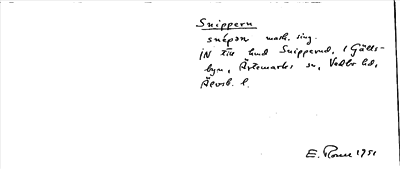 Snippern
snépən mask. sing.
IN till hmd Snippernd, i Gälls-
byn, Ärtemarks sn, Vedbo hd,
Älvsb. l.
E. 1951